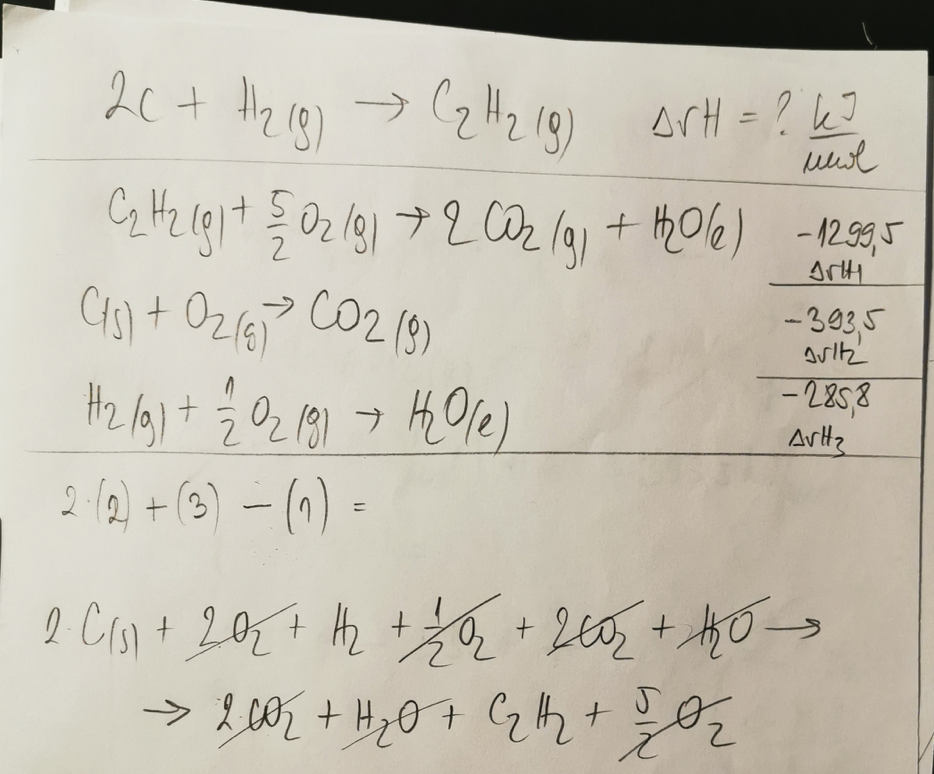 2C + H₂(g) → C₂H₂(g) ΔrH = ? kJ/mol
C₂H₂(g) + 5/2 O₂(g) → 2 CO₂(g) + H₂O(l) -1299,5
ΔrH₁
C(s) + O₂(g) → CO₂(g) -393,5
ΔrH₂
H₂(g) + 1/2 O₂(g) → H₂O(l) -285,8
ΔrH₃
2·(2) + (3) - (1) =
2·C(s) + 2O₂ + H₂ + 1/2 O₂ + 2CO₂ + H₂O →
→ 2CO₂ + H₂O + C₂H₂ + 5/2 O₂